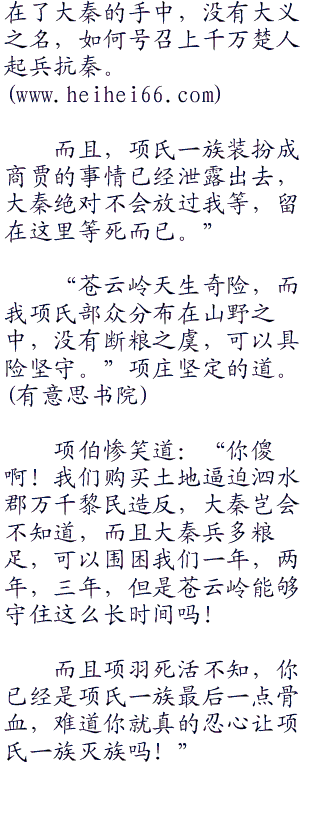 在了大秦的手中，没有大义
之名，如何号召上千万楚人
起兵抗秦。
(www.heihei66.com)
而且，项氏一族装扮成
商贾的事情已经泄露出去，
大秦绝对不会放过我等，留
在这里等死而已。”
“苍云岭天生奇险，而
我项氏部众分布在山野之
中，没有断粮之虞，可以具
险坚守。”项庄坚定的道。
(有意思书院)
项伯惨笑道：“你傻
啊！我们购买土地逼迫泗水
郡万千黎民造反，大秦岂会
不知道，而且大秦兵多粮
足，可以围困我们一年，两
年，三年，但是苍云岭能够
守住这么长时间吗！
而且项羽死活不知，你
已经是项氏一族最后一点骨
血，难道你就真的忍心让项
氏一族灭族吗！”